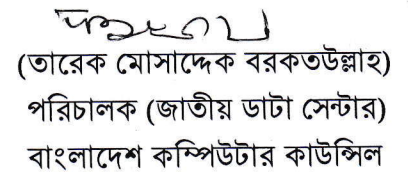 (তারেক মোসাদ্দেক বরকতউল্লাহ)
পরিচালক (জাতীয় ডাটা সেন্টার)
বাংলাদেশ কম্পিউটার কাউন্সিল